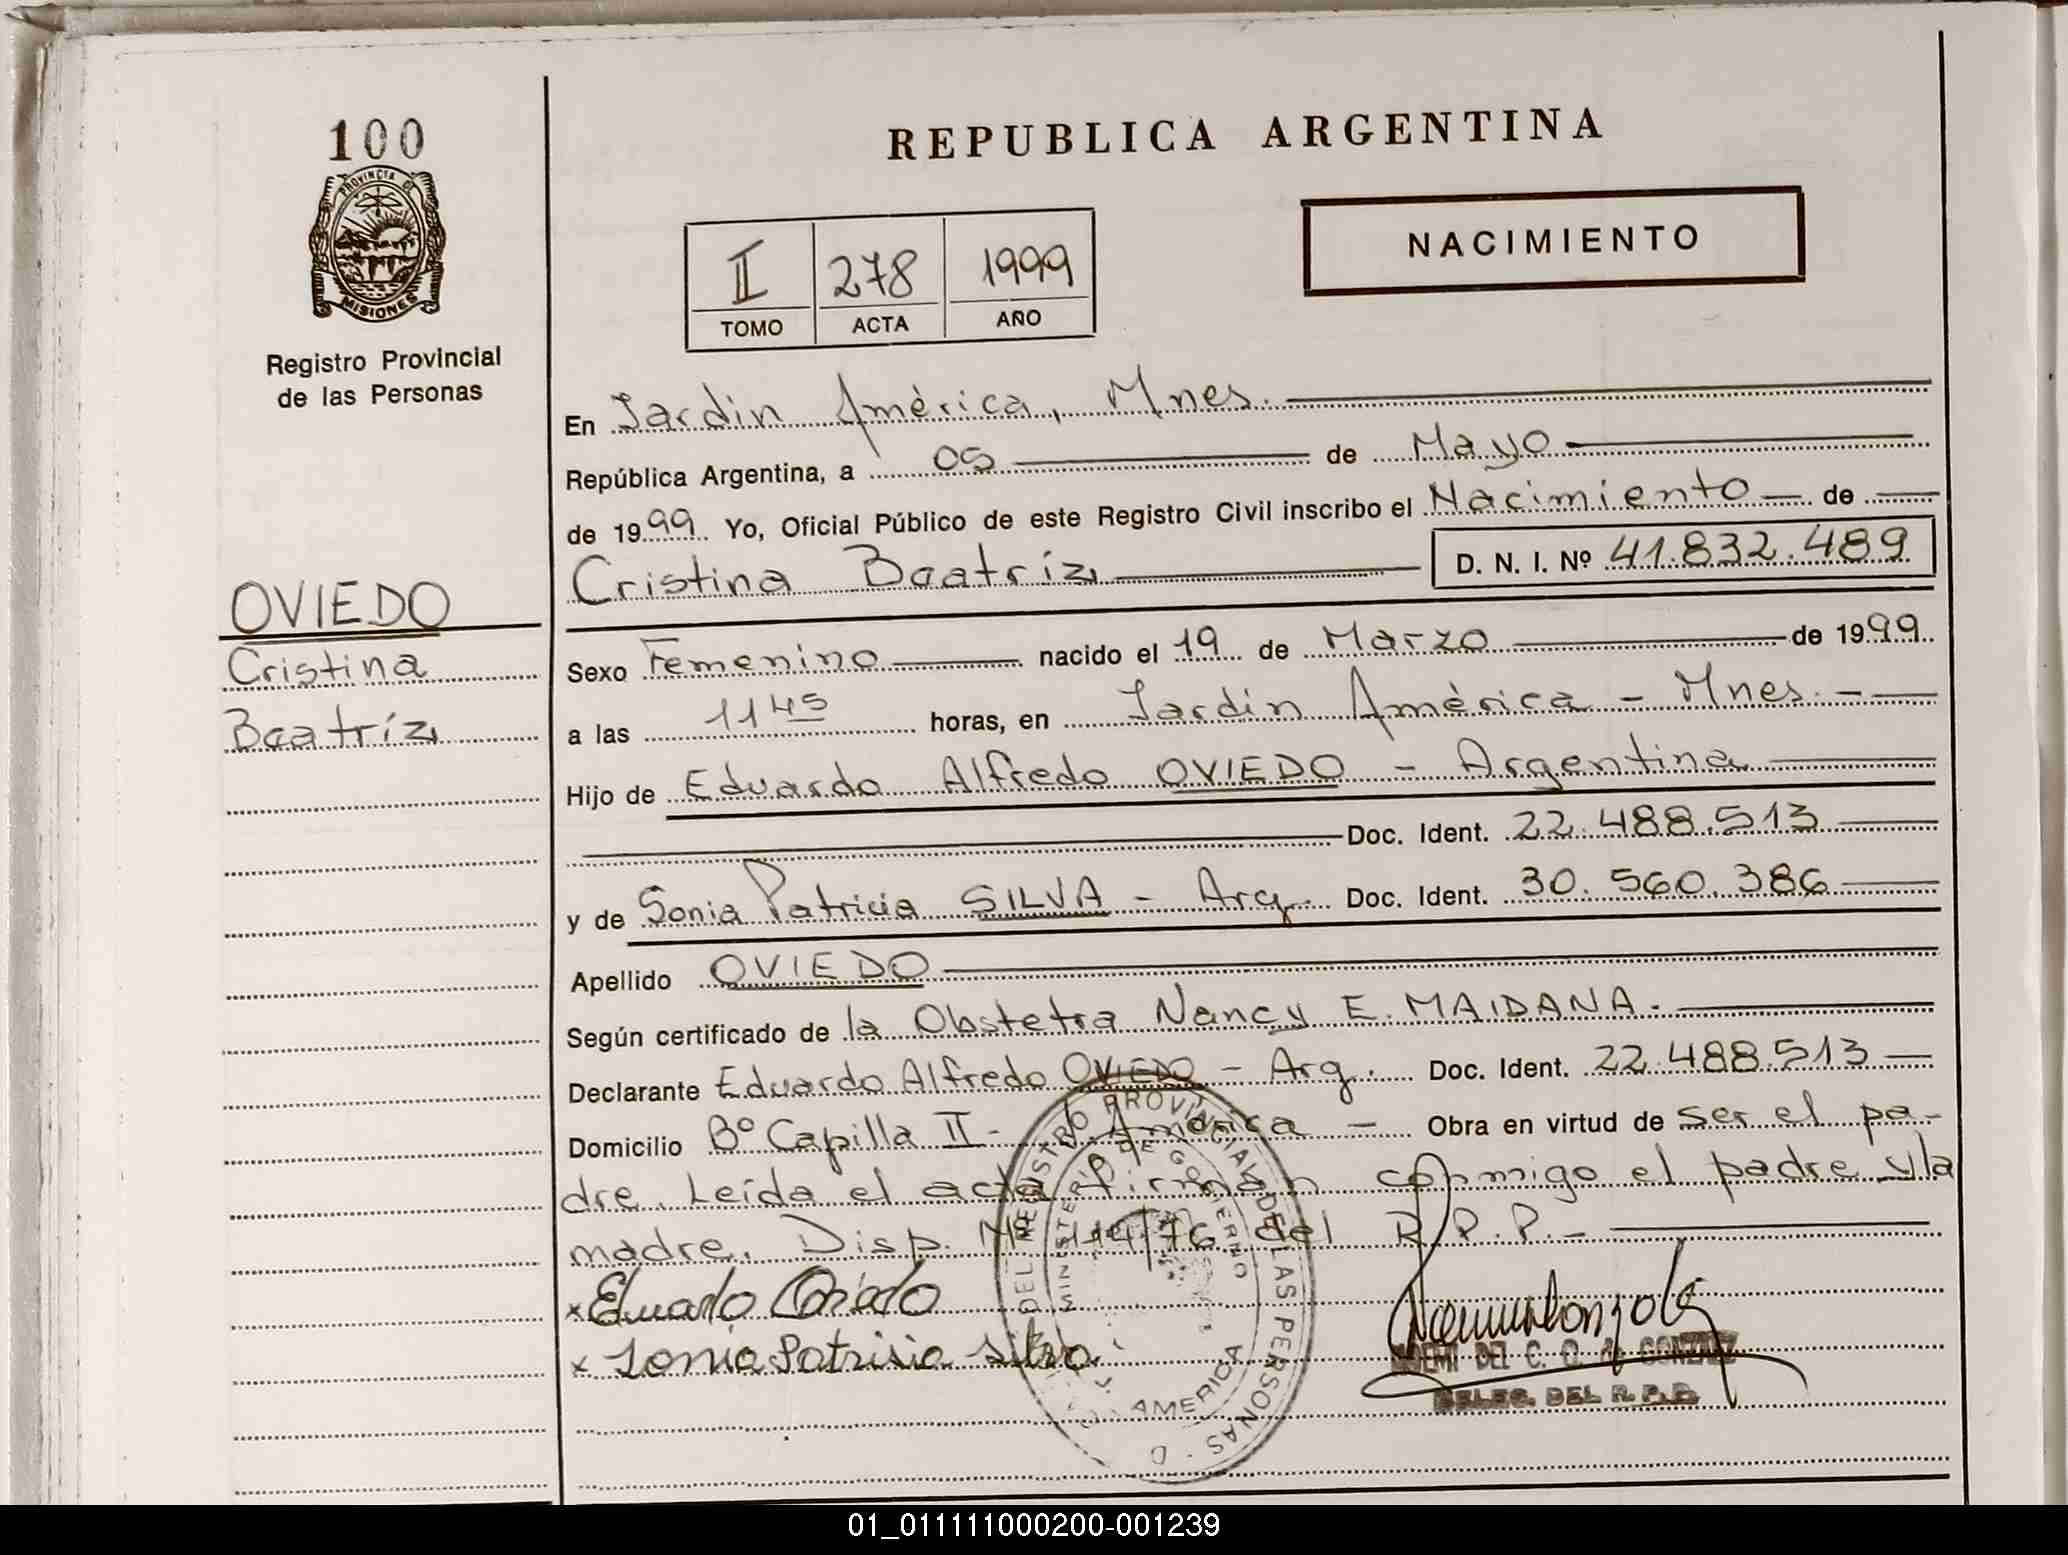 100
PROVINCIA DE
MISIONES
Registro Provincial
de las Personas
OVIEDO
Cristina
Beatríz
REPUBLICA ARGENTINA
NACIMIENTO
II 278 1999
TOMO ACTA AÑO
En Jardin América, Mnes.
República Argentina, a 05 de Mayo
de 1999 Yo, Oficial Público de este Registro Civil inscribo el Nacimiento de
Cristina Beatríz D. N. I. Nº 41.832.489
Sexo Femenino nacido el 19 de Marzo de 1999
a las 11 45 horas, en Jardin América - Mnes. -
Hijo de Eduardo Alfredo OVIEDO - Argentina
Doc. Ident. 22.488.513
y de Sonia Patricia SILVA - Arg. Doc. Ident. 30.560.386
Apellido OVIEDO
Según certificado de la Obstetra Nancy E. MAIDANA.
Declarante Eduardo Alfredo OVIEDO - Arg. Doc. Ident. 22.488.513
Domicilio Bº Capilla II - J. América - Obra en virtud de ser el pa-
dre. Leída el acta firman conmigo el padre y la
madre. Disp. Nº 114/76 del R.P.P. -
x Eduardo Oviedo
x Sonia Patrisia Silva
REGISTRO PROVINCIAL DE LAS PERSONAS
MINISTERIO DE GOBIERNO
J. AMERICA
NOEMI DEL C. O. de GONZALEZ
DELEG. DEL R. P. P.
01_011111000200-001239